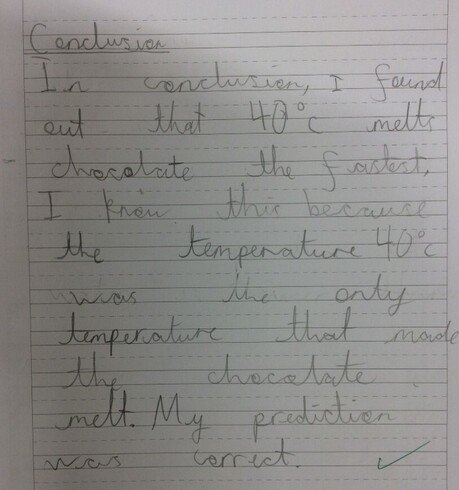 Conclusion
In conclusion, I found
out that 40°c melts
chocolate the fastest,
I know this because
the temperature 40°c
was the only
temperature that made
the chocolate
melt. My prediction
was correct. ✓